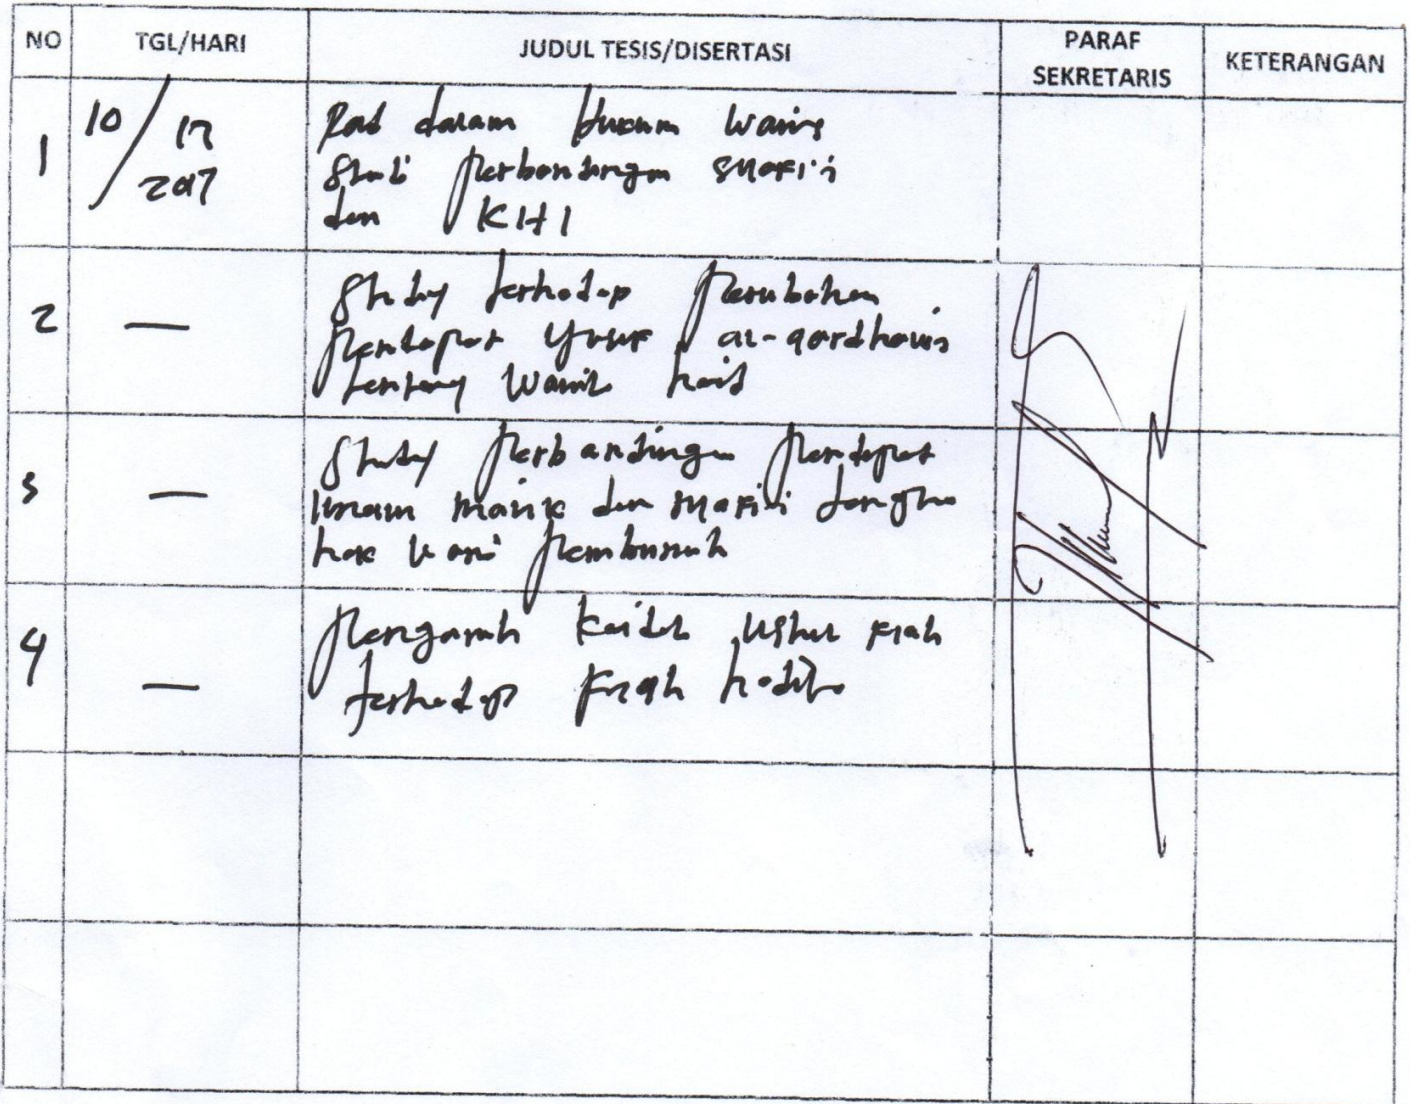 NO TGL/HARI JUDUL TESIS/DISERTASI PARAF SEKRETARIS KETERANGAN
1 10/ 2017 Rad dalam Hukum Waris
Studi Perbandingan Syafi'i
dan KHI
2 — Study terhadap Perubahan
Pendapat Yusuf al-qardhawi
tentang Wanita haid
3 — Study Perbandingan Pendapat
Imam Malik dan Syafi'i
hak Pembunuh
4 — Pengaruh Kaidah Ushul Fiqh
terhadap Fiqh hadits